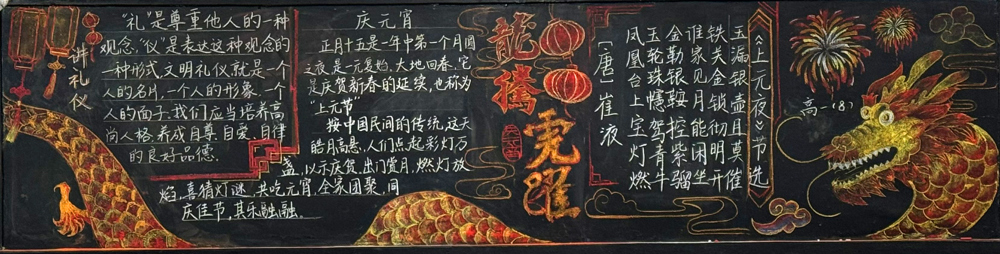 讲礼仪
“礼”是尊重他人的一种
观念,“仪”是表达这种观念的
一种形式,文明礼仪就是一个
人的名片、一个人的形象、一个
人的面子。我们应当培养高
尚人格,养成自尊、自爱、自律
的良好品德.
庆元宵
正月十五是一年中第一个月圆
之夜,是一元复始,大地回春,它
是庆贺新春的延续,也称为
“上元节”
按中国民间的传统,这天
皓月高悬,人们点起彩灯万
盏,以示庆贺.出门赏月、燃灯放
焰、喜猜灯谜、共吃元宵、全家团聚、同
庆佳节,其乐融融.
龍騰虎躍
《上元夜》节选
玉漏银壶且莫催
铁关金锁彻明开
谁家见月能闲坐
金勒银鞍控紫骝
玉轮珠幰驾青牛
凤凰台上宝灯燃
[唐]崔液
高一(8)